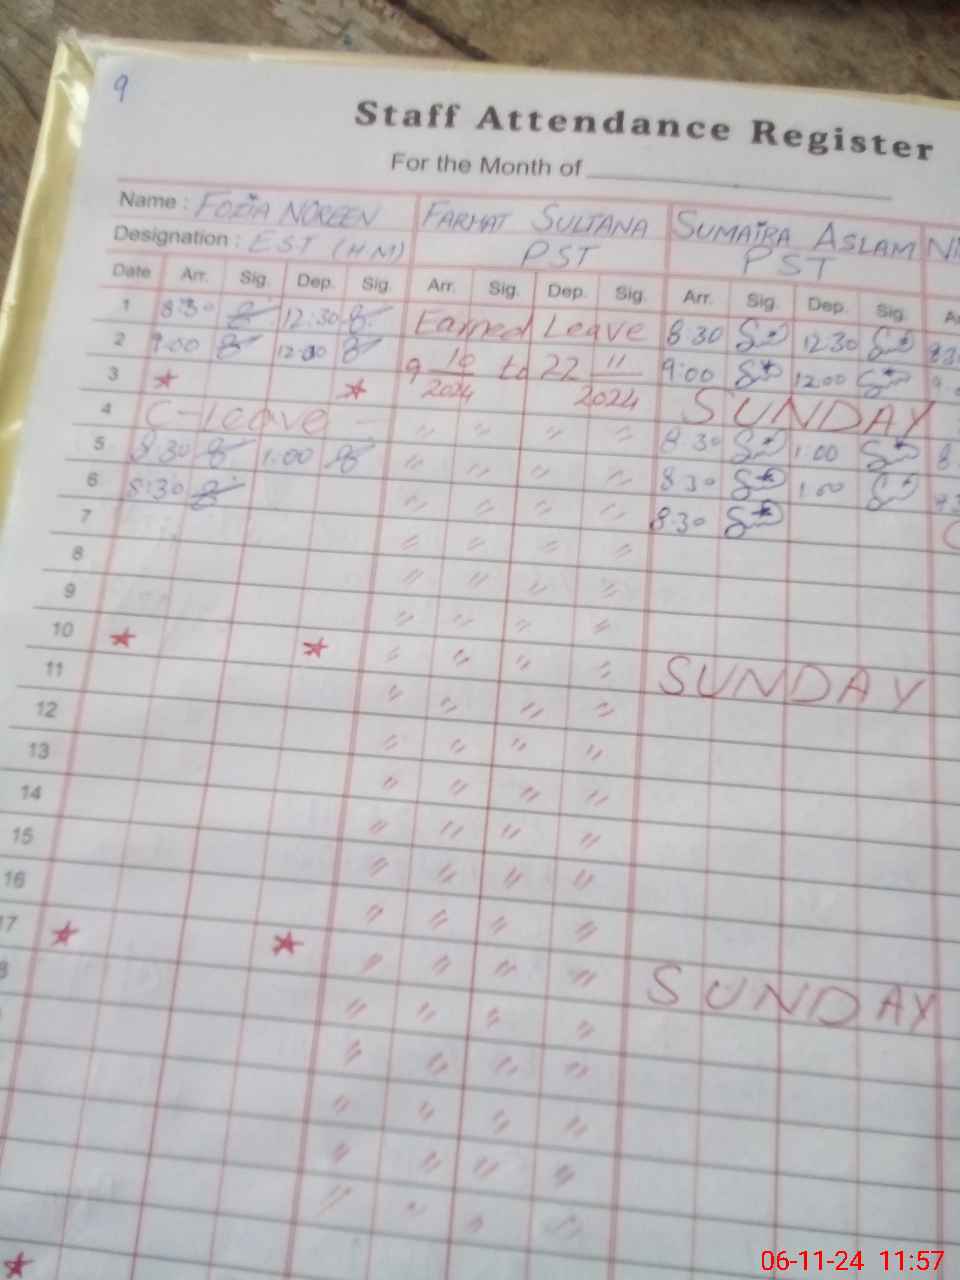 9
Staff Attendance Register
For the Month of
Name : FOZIA NOREEN FARHAT SULTANA SUMAIRA ASLAM
Designation : EST (HM) PST PST
Date Arr. Sig. Dep. Sig. Arr. Sig. Dep. Sig. Arr. Sig. Dep. Sig.
1 8:30 12:30 Earned Leave 8:30 12:30
2 9:00 12:00 9 10/2024 to 22 11/2024 9:00 12:00
3 SUNDAY
4 C-Leave 〃 〃 〃 〃 8:30 1:00
5 8:30 1:00 〃 〃 〃 〃 8:30 1:00
6 8:30 〃 〃 〃 〃 8:30
7 〃 〃 〃 〃
8 〃 〃 〃 〃
9 〃 〃 〃 〃
10 〃 〃 〃 〃 SUNDAY
11 〃 〃 〃 〃
12 〃 〃 〃 〃
13 〃 〃 〃 〃
14 〃 〃 〃 〃
15 〃 〃 〃 〃
16 〃 〃 〃 〃
17 〃 〃 〃 〃 SUNDAY
06-11-24 11:57